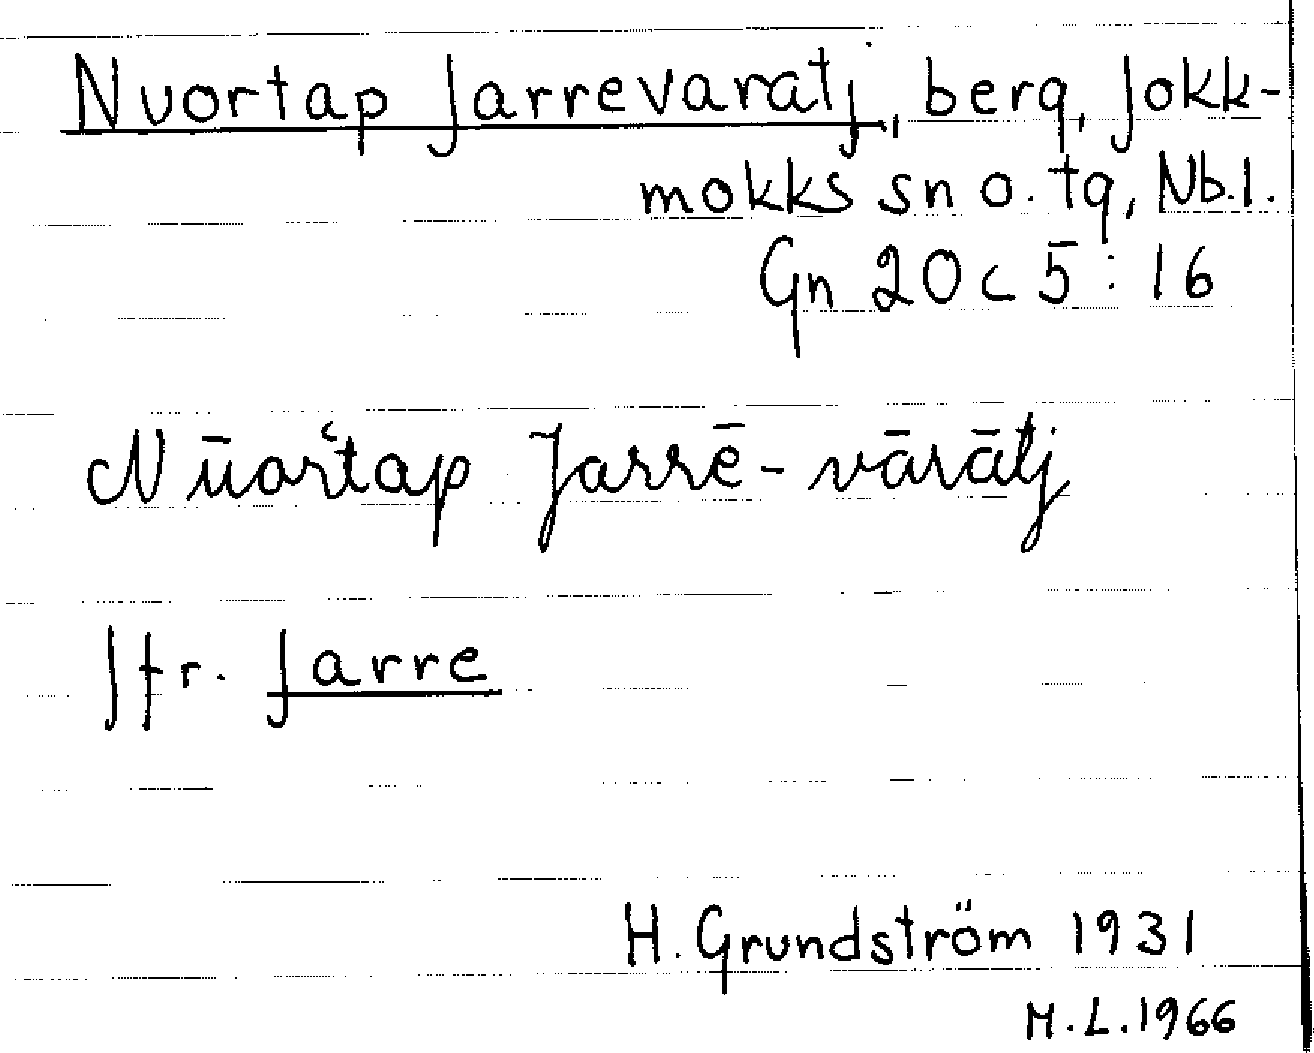 Nuortap Jarrevaratj, berg, Jokk-
mokks sn o. tg, Nb.l.
Gn 20 c 5 : 16
Nūor̔tap Jarrē-vārātj
Jfr. Jarre
H. Grundström 1931
M.L.1966